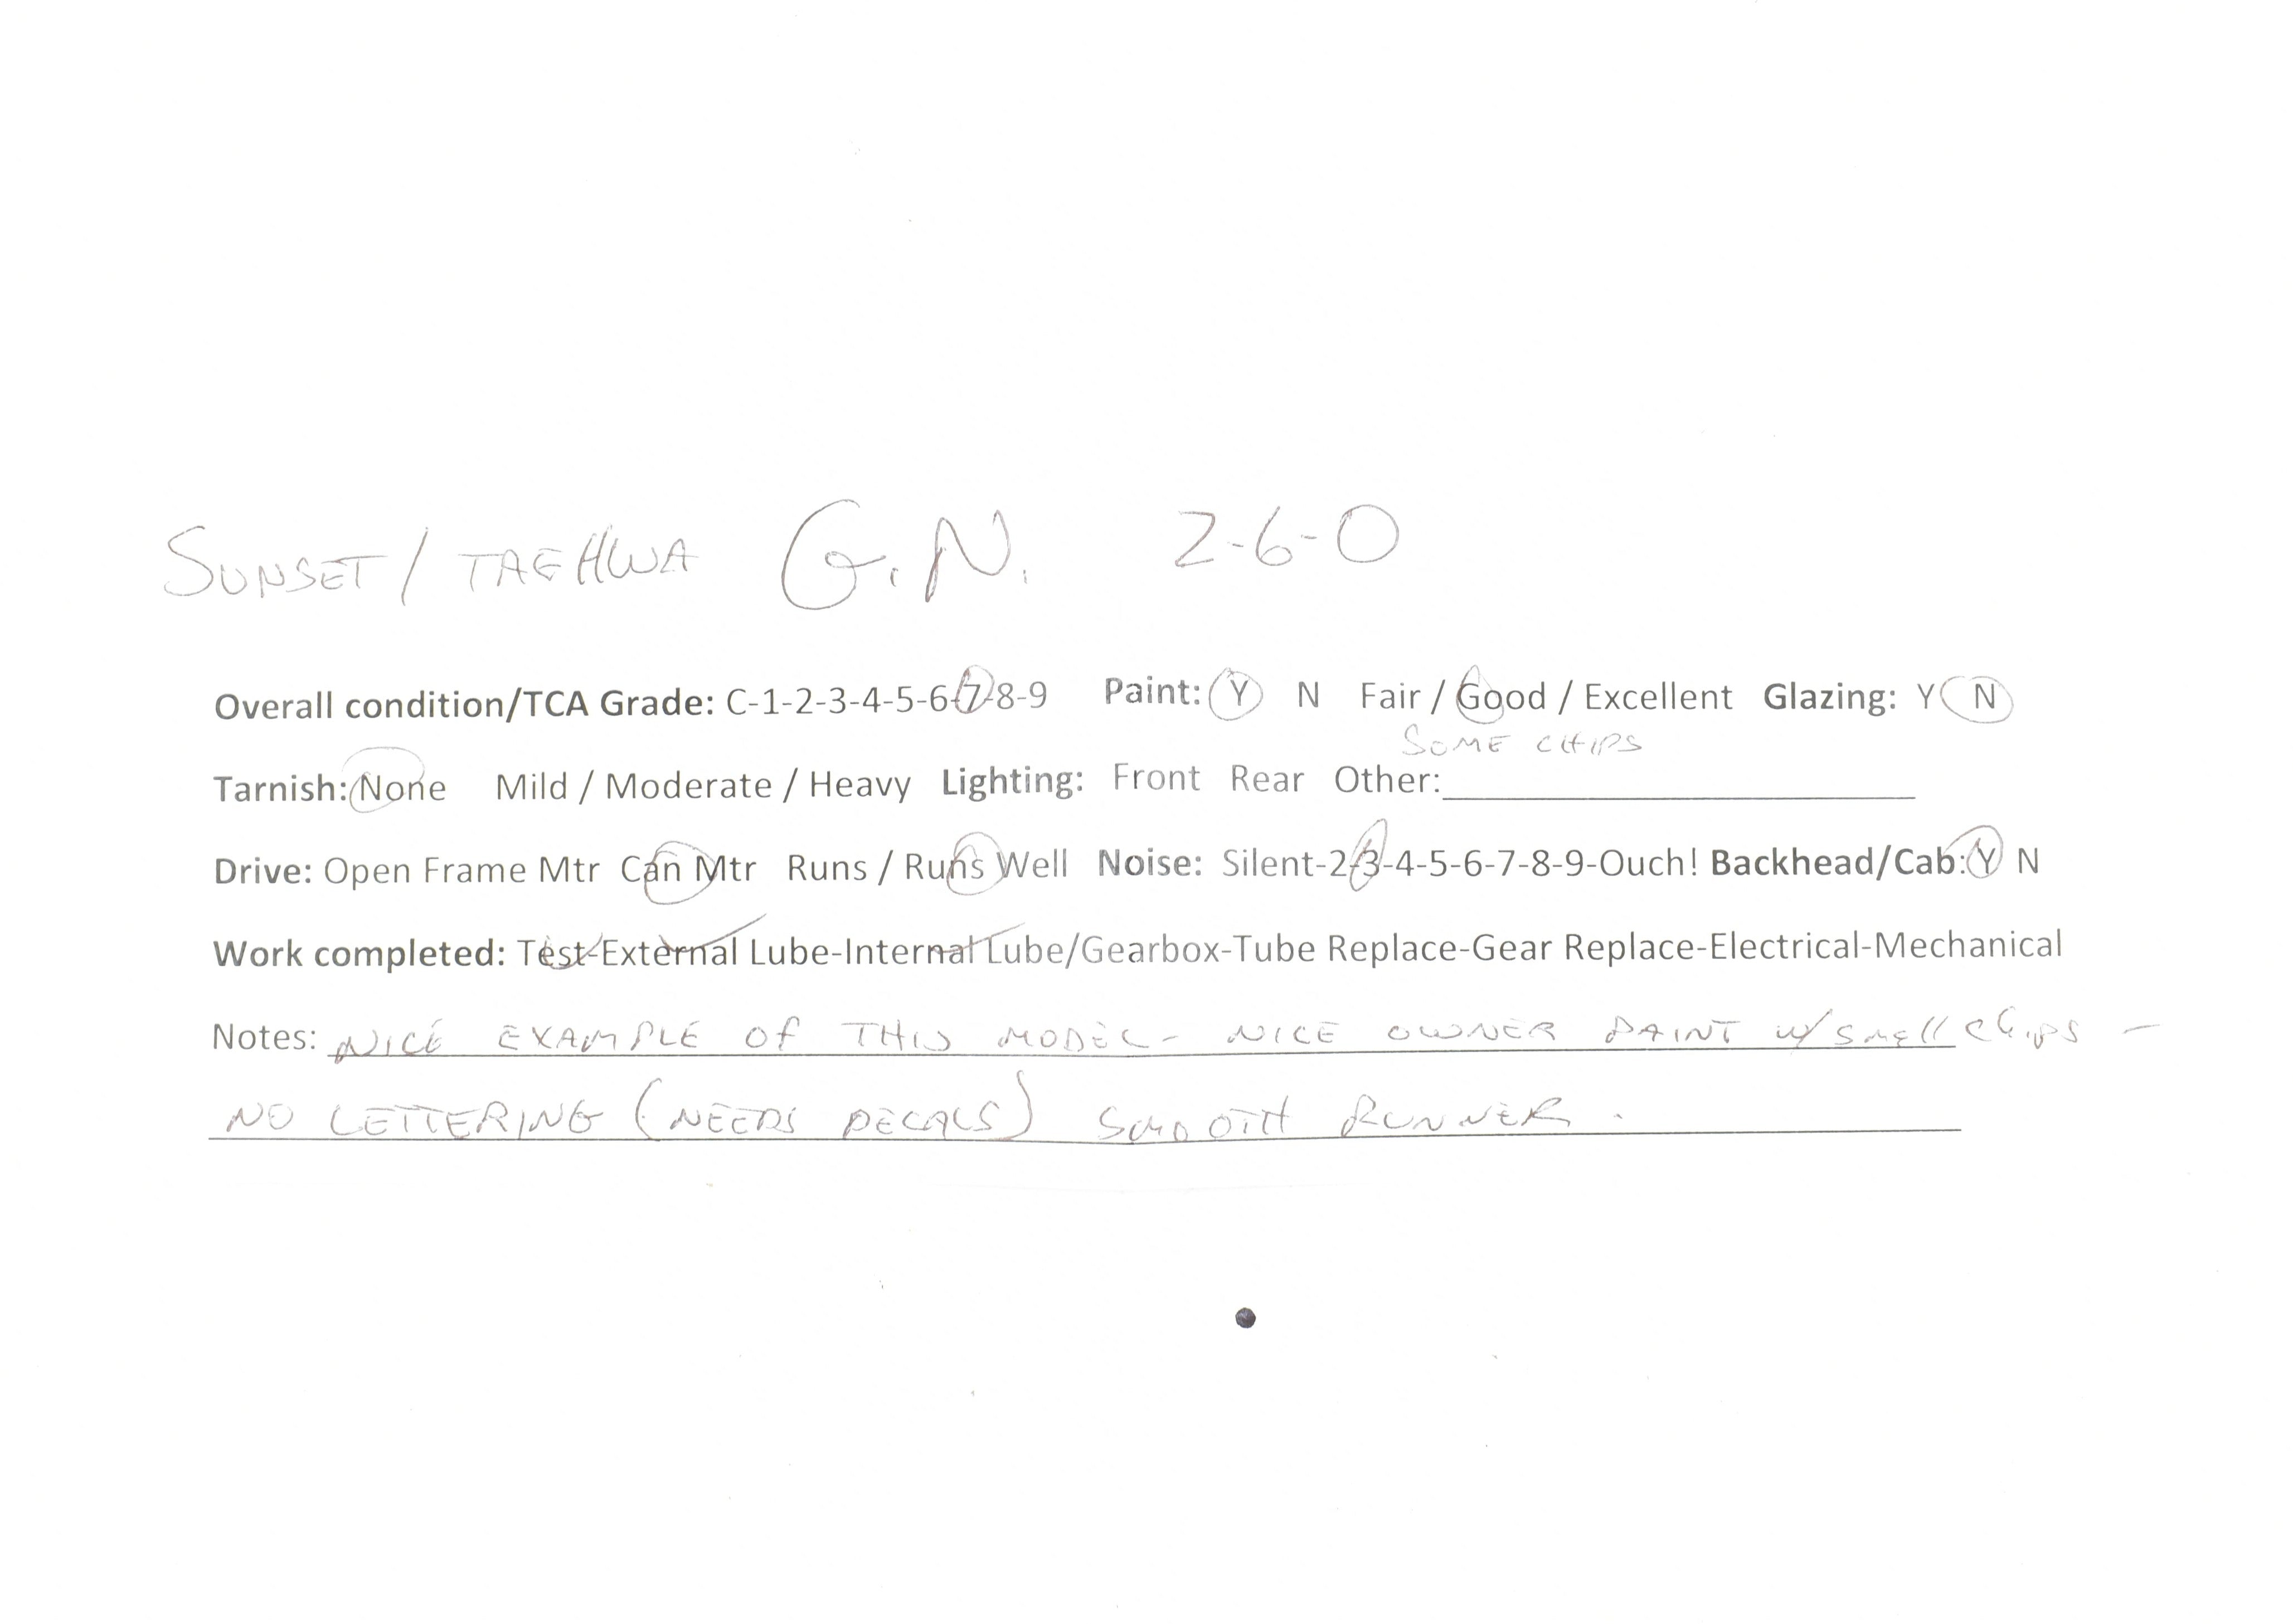 SUNSET / TAEHWA G.N. 2-6-0
Overall condition/TCA Grade: C-1-2-3-4-5-6-7-8-9 Paint: Y N Fair / Good / Excellent Glazing: Y N
SOME CHIPS
Tarnish: None Mild / Moderate / Heavy Lighting: Front Rear Other:
Drive: Open Frame Mtr Can Mtr Runs / Runs Well Noise: Silent-2-3-4-5-6-7-8-9-Ouch! Backhead/Cab: Y N
Work completed: Test-External Lube-Internal Lube/Gearbox-Tube Replace-Gear Replace-Electrical-Mechanical
Notes: NICE EXAMPLE OF THIS MODEL - NICE OWNER PAINT w/ SMALL CHIPS -
NO LETTERING (NEEDS DECALS) SMOOTH RUNNER.